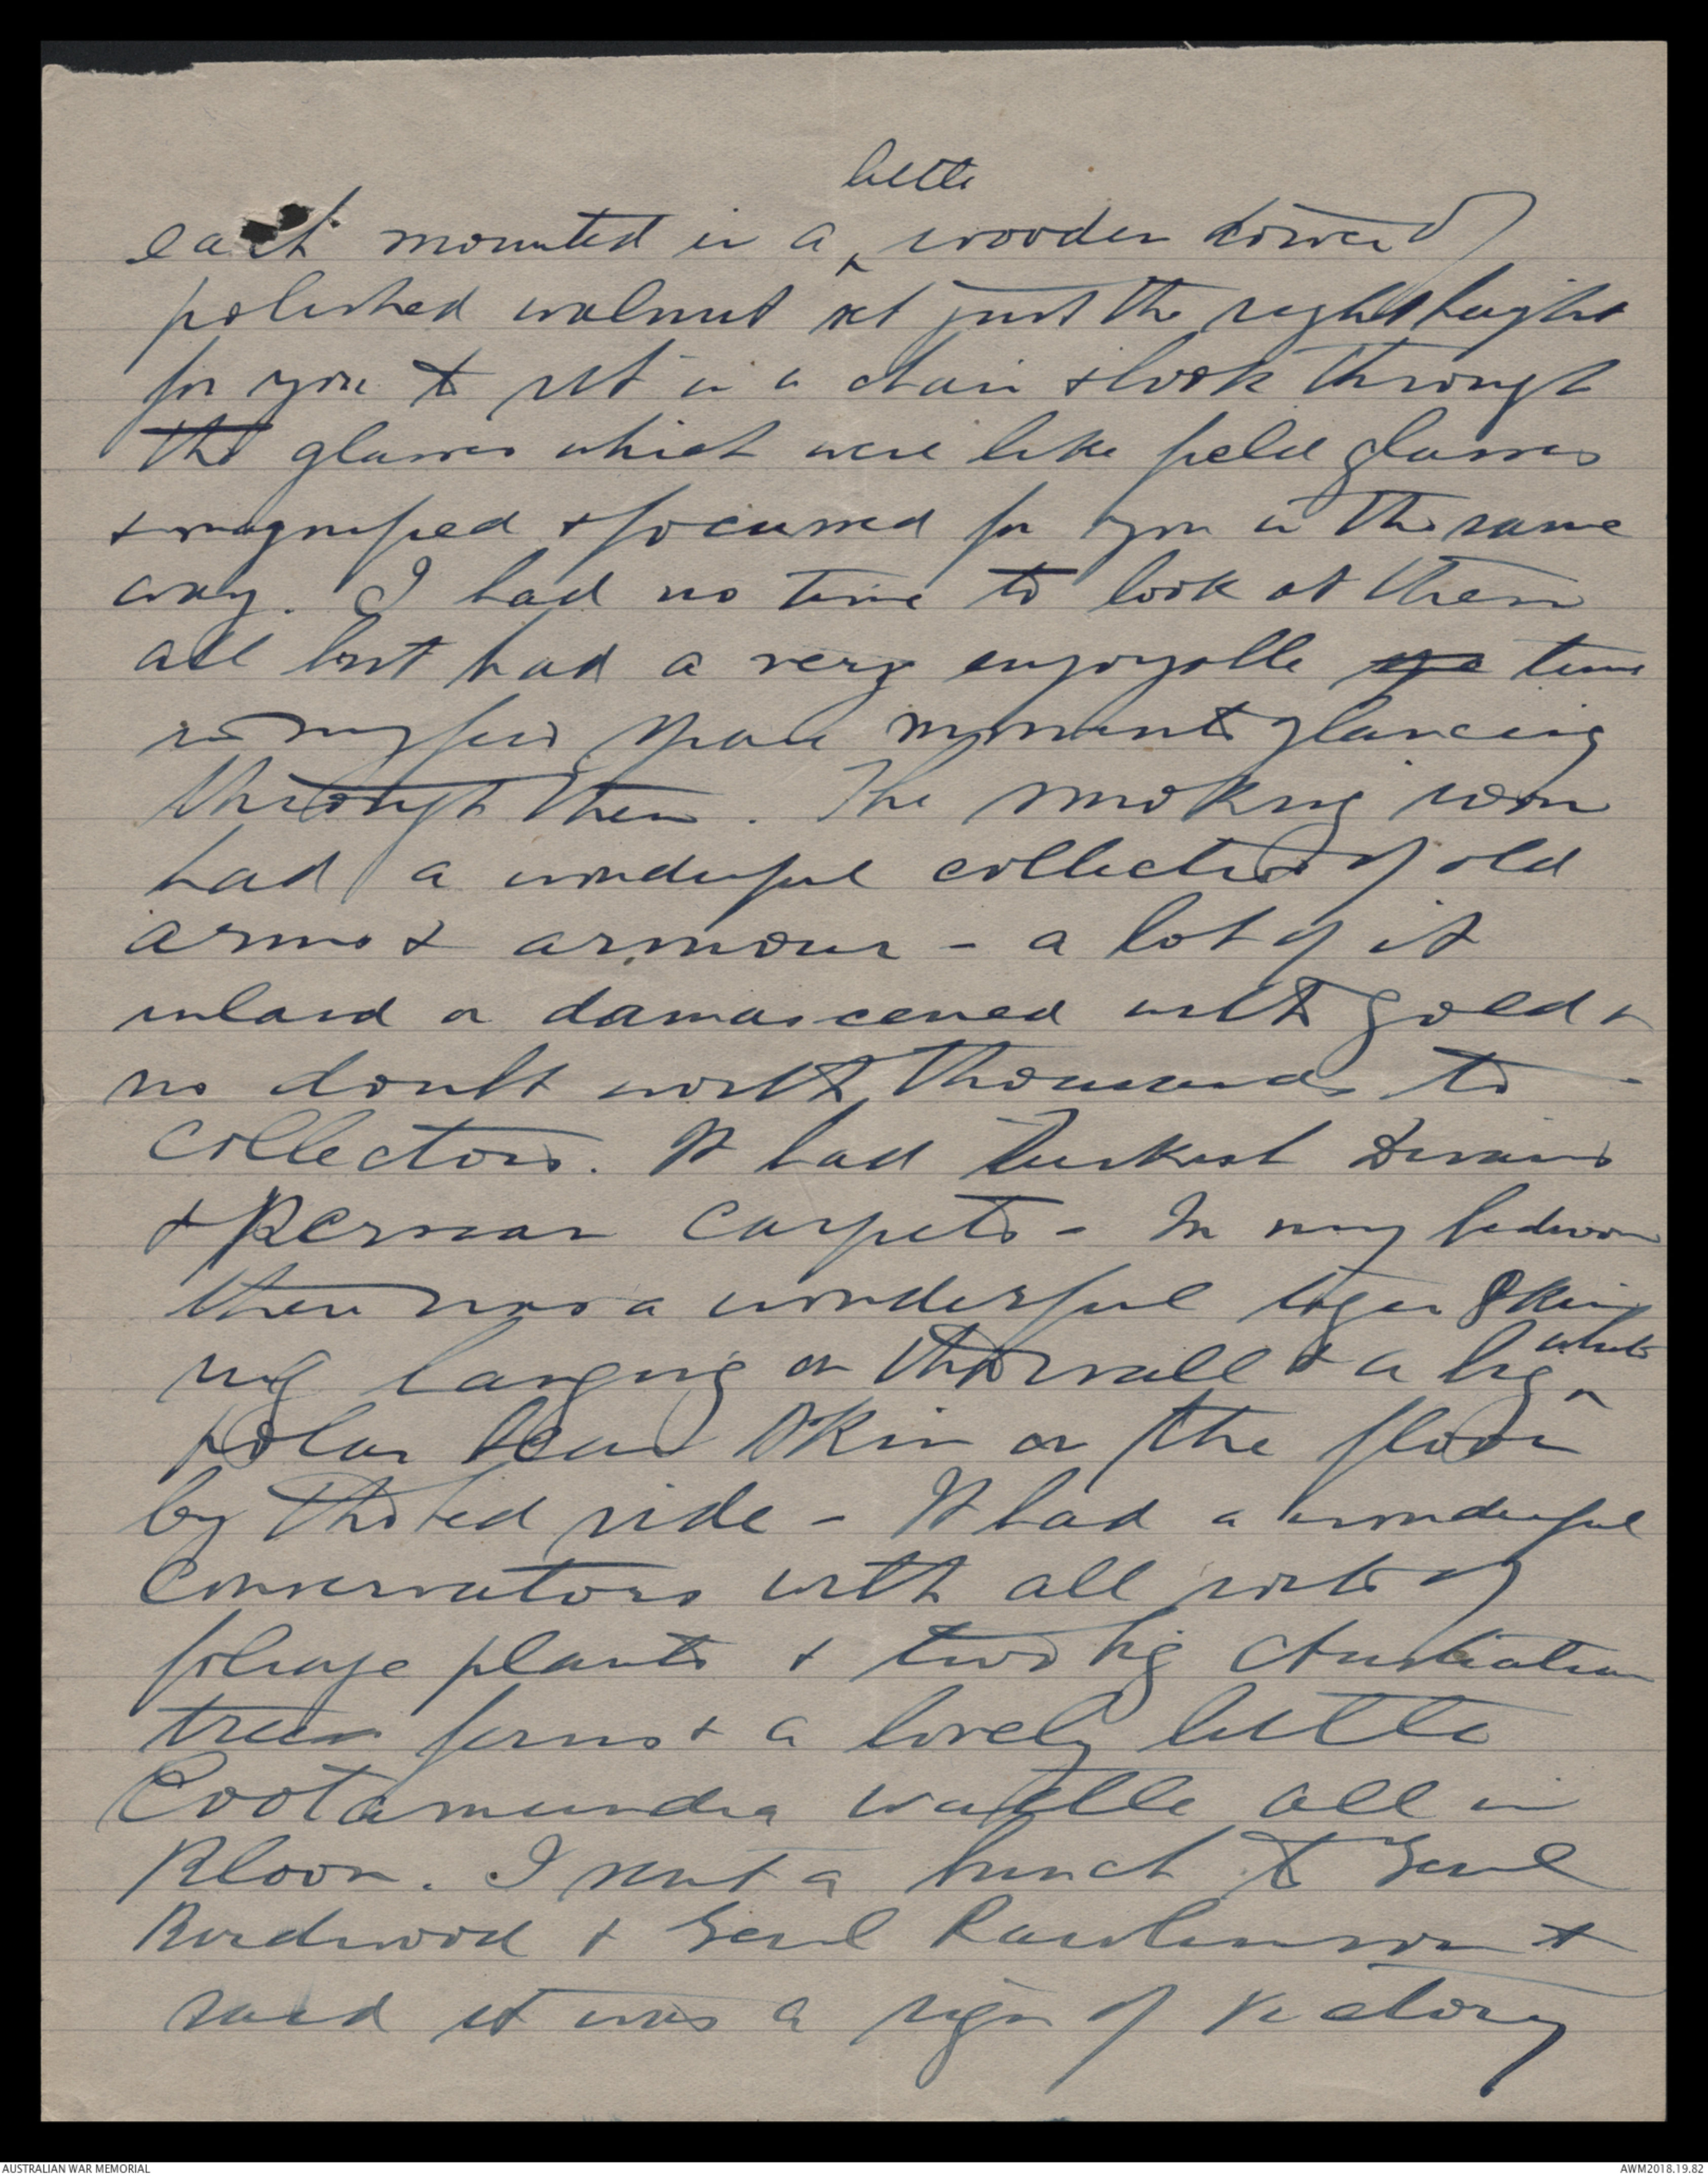 little
each mounted in a wooden
polished walnut set just the right height
for you to sit in a chair & look through
the glasses which were like field glasses
& magnified & focussed for you in the same
way. I had no time to look at them
all but had a very enjoyable time
in my few spare moments glancing
through them. The smoking room
had a wonderful collection of old
arms & armour - a lot of it
inlaid or damascened with gold &
no doubt worth thousands to
collectors. It had Turkish Divans
& Persian Carpets - In my bedroom
there was a wonderful tiger skin
rug hanging on the wall & a big white
polar bear skin on the floor
by the bed side - It had a wonderful
Conservatory with all sorts of
foliage plants & two big Australian
tree ferns & a lovely little
Cootamundra wattle all in
Bloom. I sent a bunch to Genl
Birdwood & Genl Rawlinson &
said it was a sign of victory
AUSTRALIAN WAR MEMORIAL
AWM2018.19.82